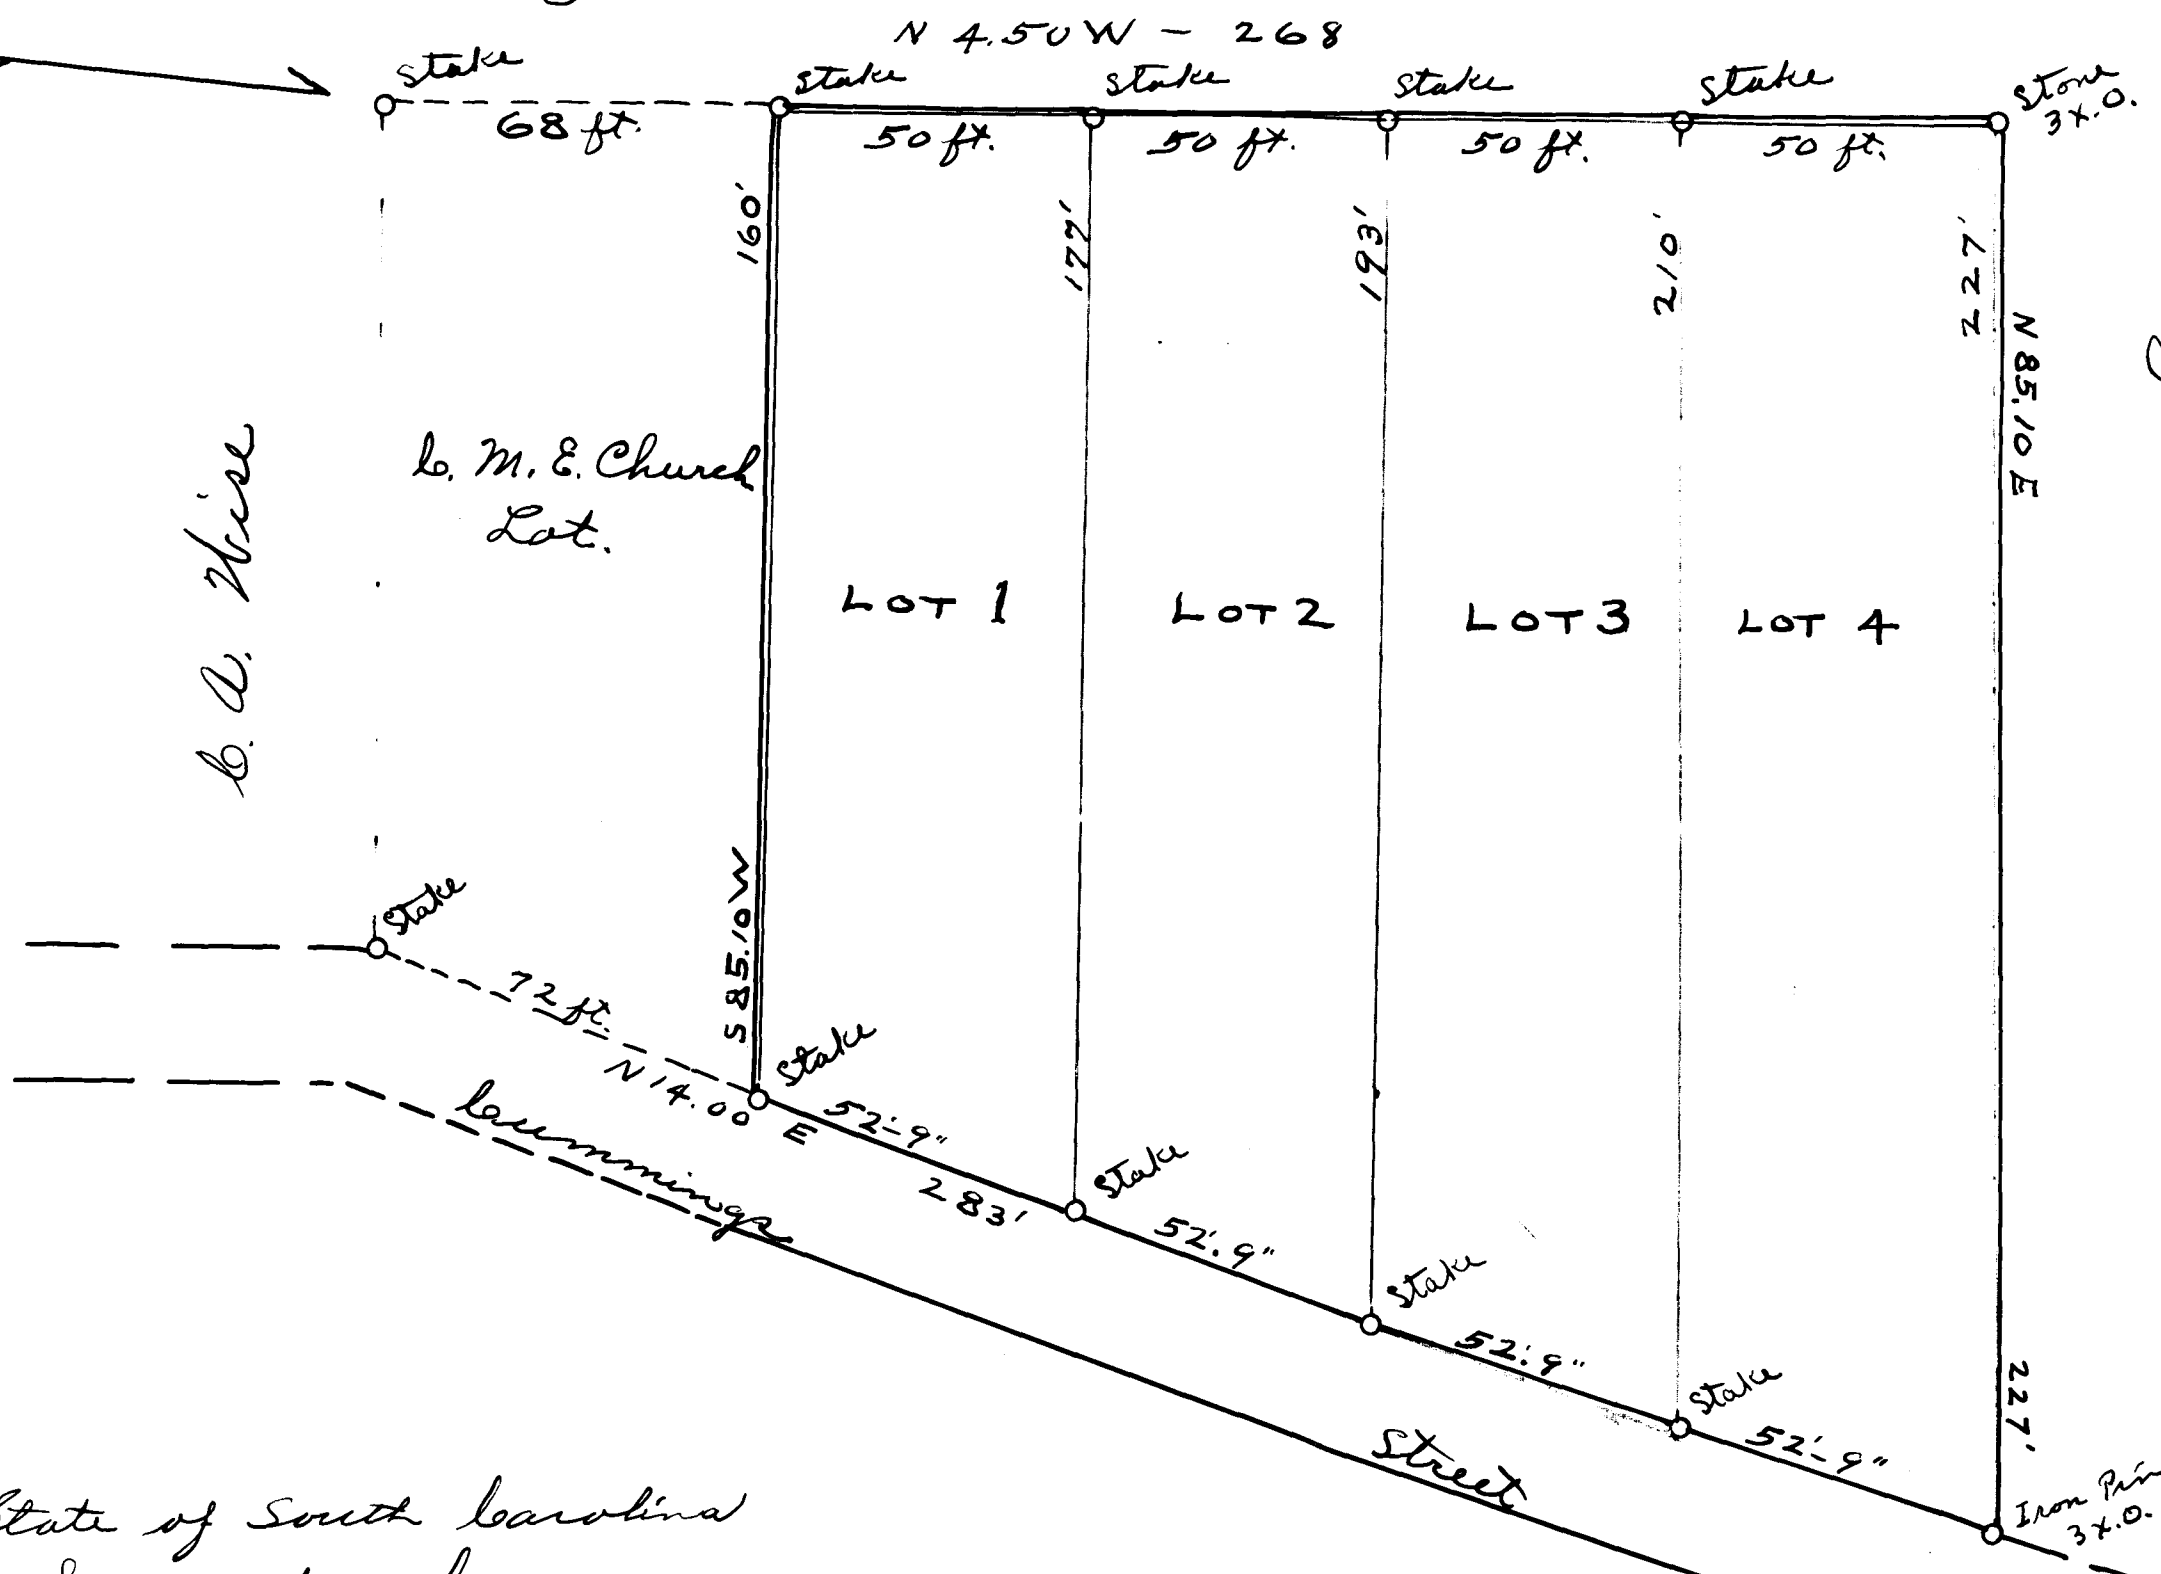 N 4.50 W - 268
Stake
Stake
Stake
Stake
Stake
Stone
3x.O.
68 ft.
50 ft.
50 ft.
50 ft.
50 ft.
160'
177'
193'
210'
227'
N 85.10 E
C. A. Wise
C. M. E. Church
Lot.
LOT 1
LOT 2
LOT 3
LOT 4
S 85.10 W
Stake
72 ft.
N 14.00 E
Stake
52'-9"
283'
Stake
52'.9"
Stake
52'.9"
Stake
52'-9"
227'
Iron Pin
3x.O.
Cummings
Street
State of South Carolina